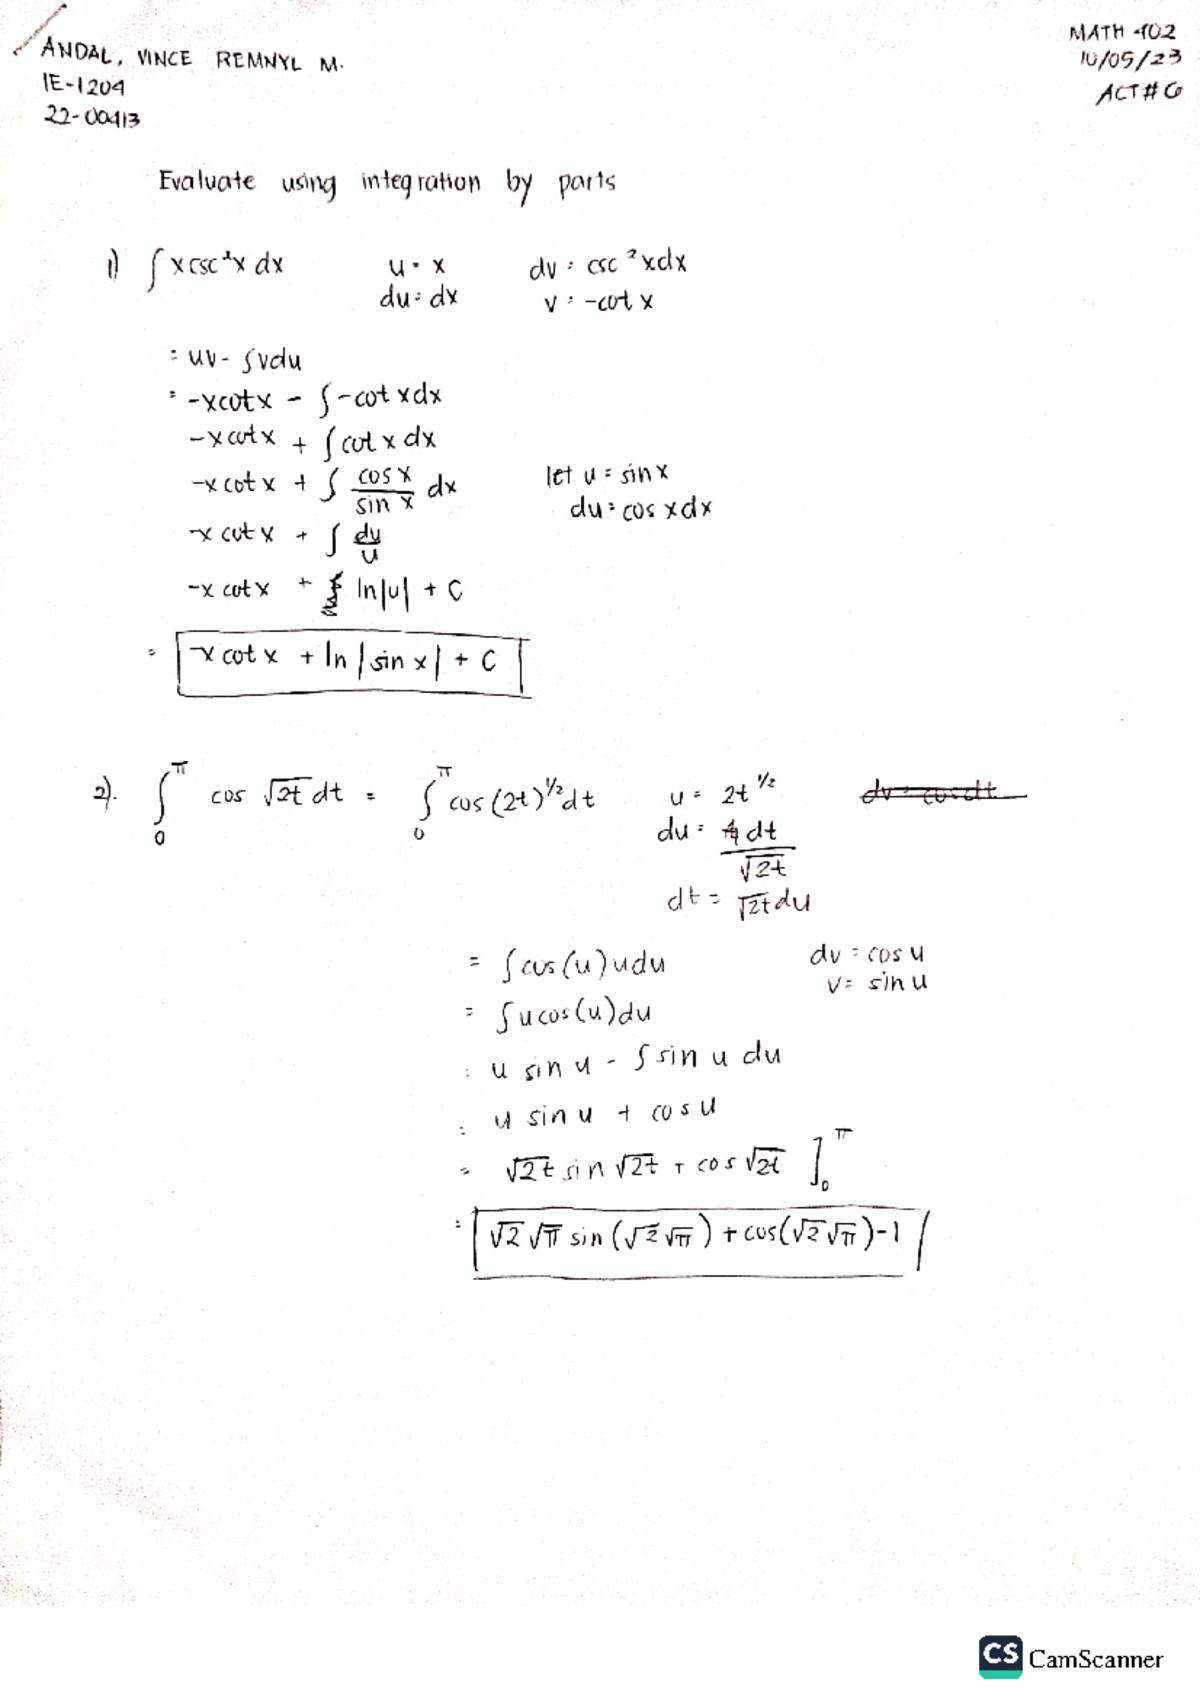 ANDAL, VINCE REMNYL M.
IE-1204
22-00413
MATH-102
10/05/23
ACT#6
Evaluate using integration by parts
1) ∫ x csc²x dx   u = x   dv = csc²xdx
du = dx   v = -cot x
= uv - ∫vdu
= -xcotx - ∫-cot xdx
-xcotx + ∫cot x dx
-xcotx + ∫ cos x / sin x dx   let u = sin x
du = cos xdx
-x cot x + ∫ du/u
-x cot x + ln|u| + C
= -x cot x + ln |sin x| + C
2). ∫₀^π cos √2t dt = ∫₀^π cos (2t)^1/2 dt   u = 2t^1/2
du = dt / √2t
dt = √2t du
= ∫cos(u)udu   dv = cos u
= ∫ucos(u)du   v = sin u
= u sin u - ∫sin u du
= u sin u + cos u
= √2t sin √2t + cos √2t ]₀^π
= √2 √π sin (√2 √π) + cos(√2√π) - 1
CS CamScanner